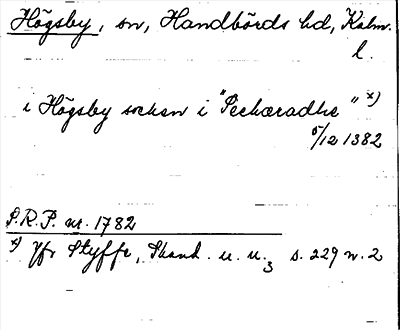 Högsby, sn, Handbörds hd, Kalm.
l.
i Högsby socken i "Peehæradhe" x)
5/12 1382
P.R.P. nr. 1782
x) Jfr Styffe, Skand. u. u.3 s. 229 n. 2